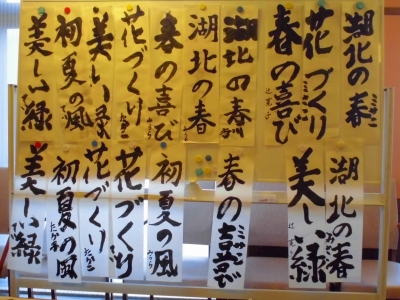 湖北の春
花づくり
春の喜び
湖北の春
湖北の春
春の喜び
花づくり
美しい緑
初夏の風
美しい緑
湖北の春
美しい緑
春の喜び
初夏の風
花づくり
花づくり
初夏の風
美しい緑